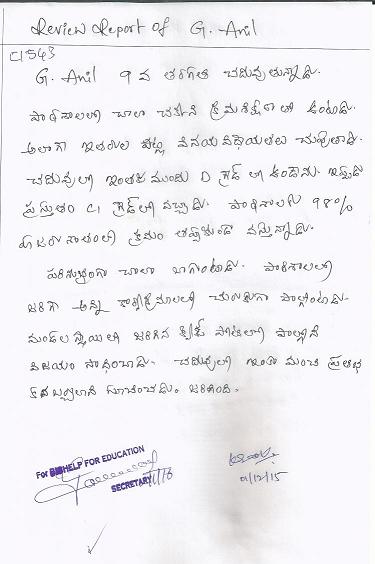 Review Report of G. Anil
C1543
G. Anil 9 వ తరగతి చదువుతున్నాడు.
పాఠశాలలో చాలా చక్కని క్రమశిక్షణ తో ఉంటాడు.
అలాగే ఇతరుల పట్ల వినయ విధేయతలు చూపుతాడు.
చదువులో ఇంతకముందు D గ్రేడ్ లో ఉండేవాడు. ఇప్పుడు
ప్రస్తుతం C1 గ్రేడ్ లో వచ్చాడు. పాఠశాలకు 98%
హాజరు శాతంతో క్రమం తప్పకుండా వస్తున్నాడు.
పరిశుభ్రంగా చాలా బాగుంటాడు. పాఠశాలలో
జరిగే అన్ని కార్యక్రమాలలో చురుకుగా పాల్గొంటాడు.
మండల స్థాయిలో జరిగిన క్విజ్ పోటీలలో పాల్గొని
విజయం సాధించాడు. చదువులో ఇంకా మంచి ప్రతిభ
కనబర్చాలని సూచించడం జరిగింది.
For HELP FOR EDUCATION
SECRETARY
01/12/15